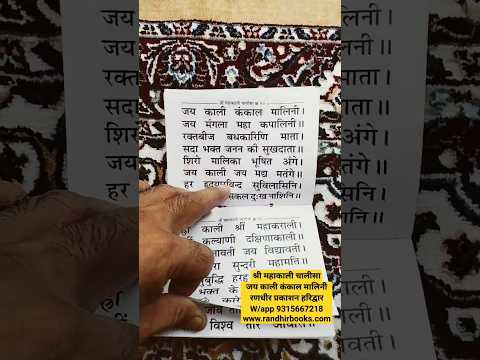 श्री महाकाली चालीसा
जय काली कंकाल मालिनी।
जय मंगला महा कपालिनी॥
रक्तबीज बधकारिणि माता।
सदा भक्त जनन की सुखदाता॥
शिरो मालिका भूषित अंगे।
जय काली जय मद्य मतंगे॥
हर हृदयारविन्द सुविलासिनि।
सकल दुःख नाशिनि॥
काली श्रीं महाकराली।
कल्याणी दक्षिणाकाली॥
जय विद्यावती।
सुन्दरी महामति॥
हरहु
भक्त के
विश्व
श्री महाकाली चालीसा
जय काली कंकाल मालिनी
रणधीर प्रकाशन हरिद्वार
W/app 9315667218
www.randhirbooks.com